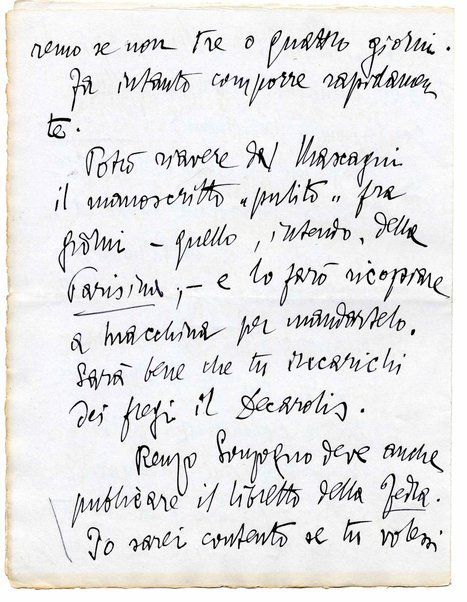 remo se non tre o quattro giorni.
Fa intanto comporre rapidamen
te.
Potrò riavere dal Mascagni
il manoscritto "pulito" fra
giorni – quello, intendo, della
Parisina, – e lo farò ricopiare
a macchina per mandartelo.
Sarà bene che tu incarichi
dei fregi il Decarolis.
Renzo Sonzogno deve anche
publicare il libretto della Fedra.
Io sarei contento se tu volessi